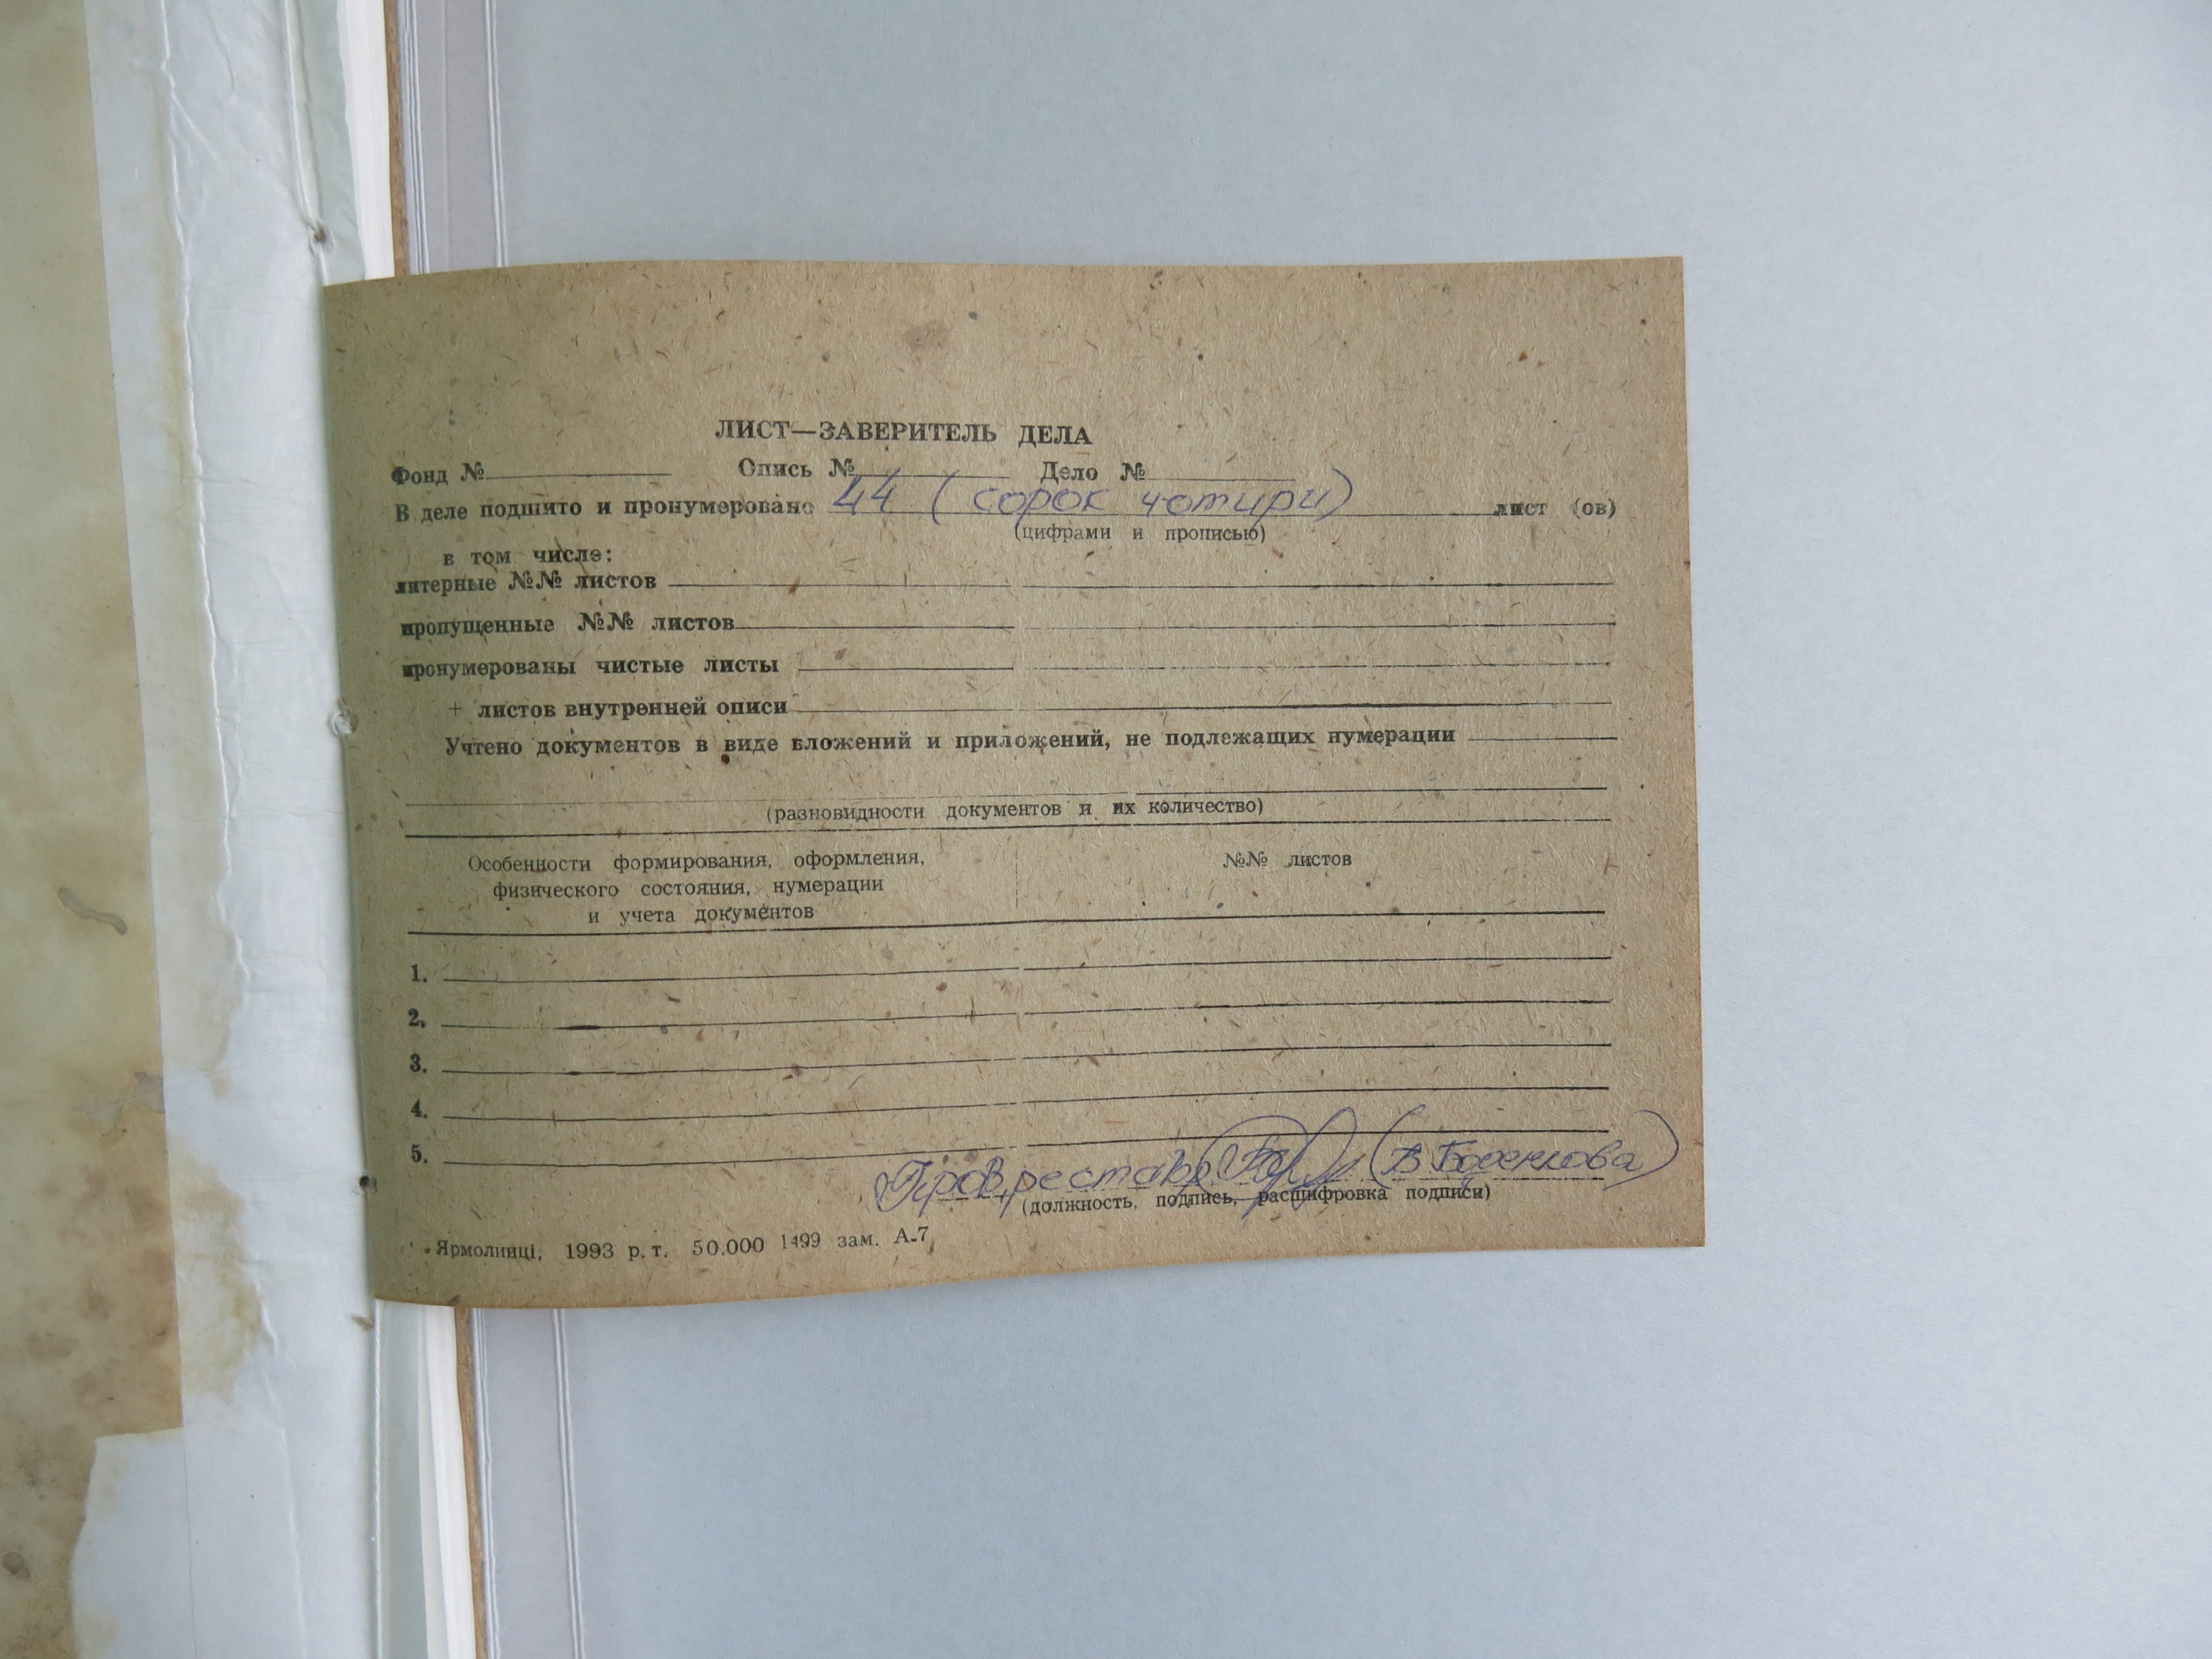 ЛИСТ—ЗАВЕРИТЕЛЬ ДЕЛА
Фонд № Опись № Дело №
В деле подшито и пронумеровано 44 (сорок чотири) лист (ов)
(цифрами и прописью)
в том числе:
литерные №№ листов
пропущенные №№ листов
пронумерованы чистые листы
+ листов внутренней описи
Учтено документов в виде вложений и приложений, не подлежащих нумерации
(разновидности документов и их количество)
Особенности формирования, оформления, №№ листов
физического состояния, нумерации
и учета документов
1.
2.
3.
4.
5.
Пров. реставр.
(должность, подпись, расшифровка подписи)
Ярмолинці, 1993 р. т. 50.000 1499 зам. А-7